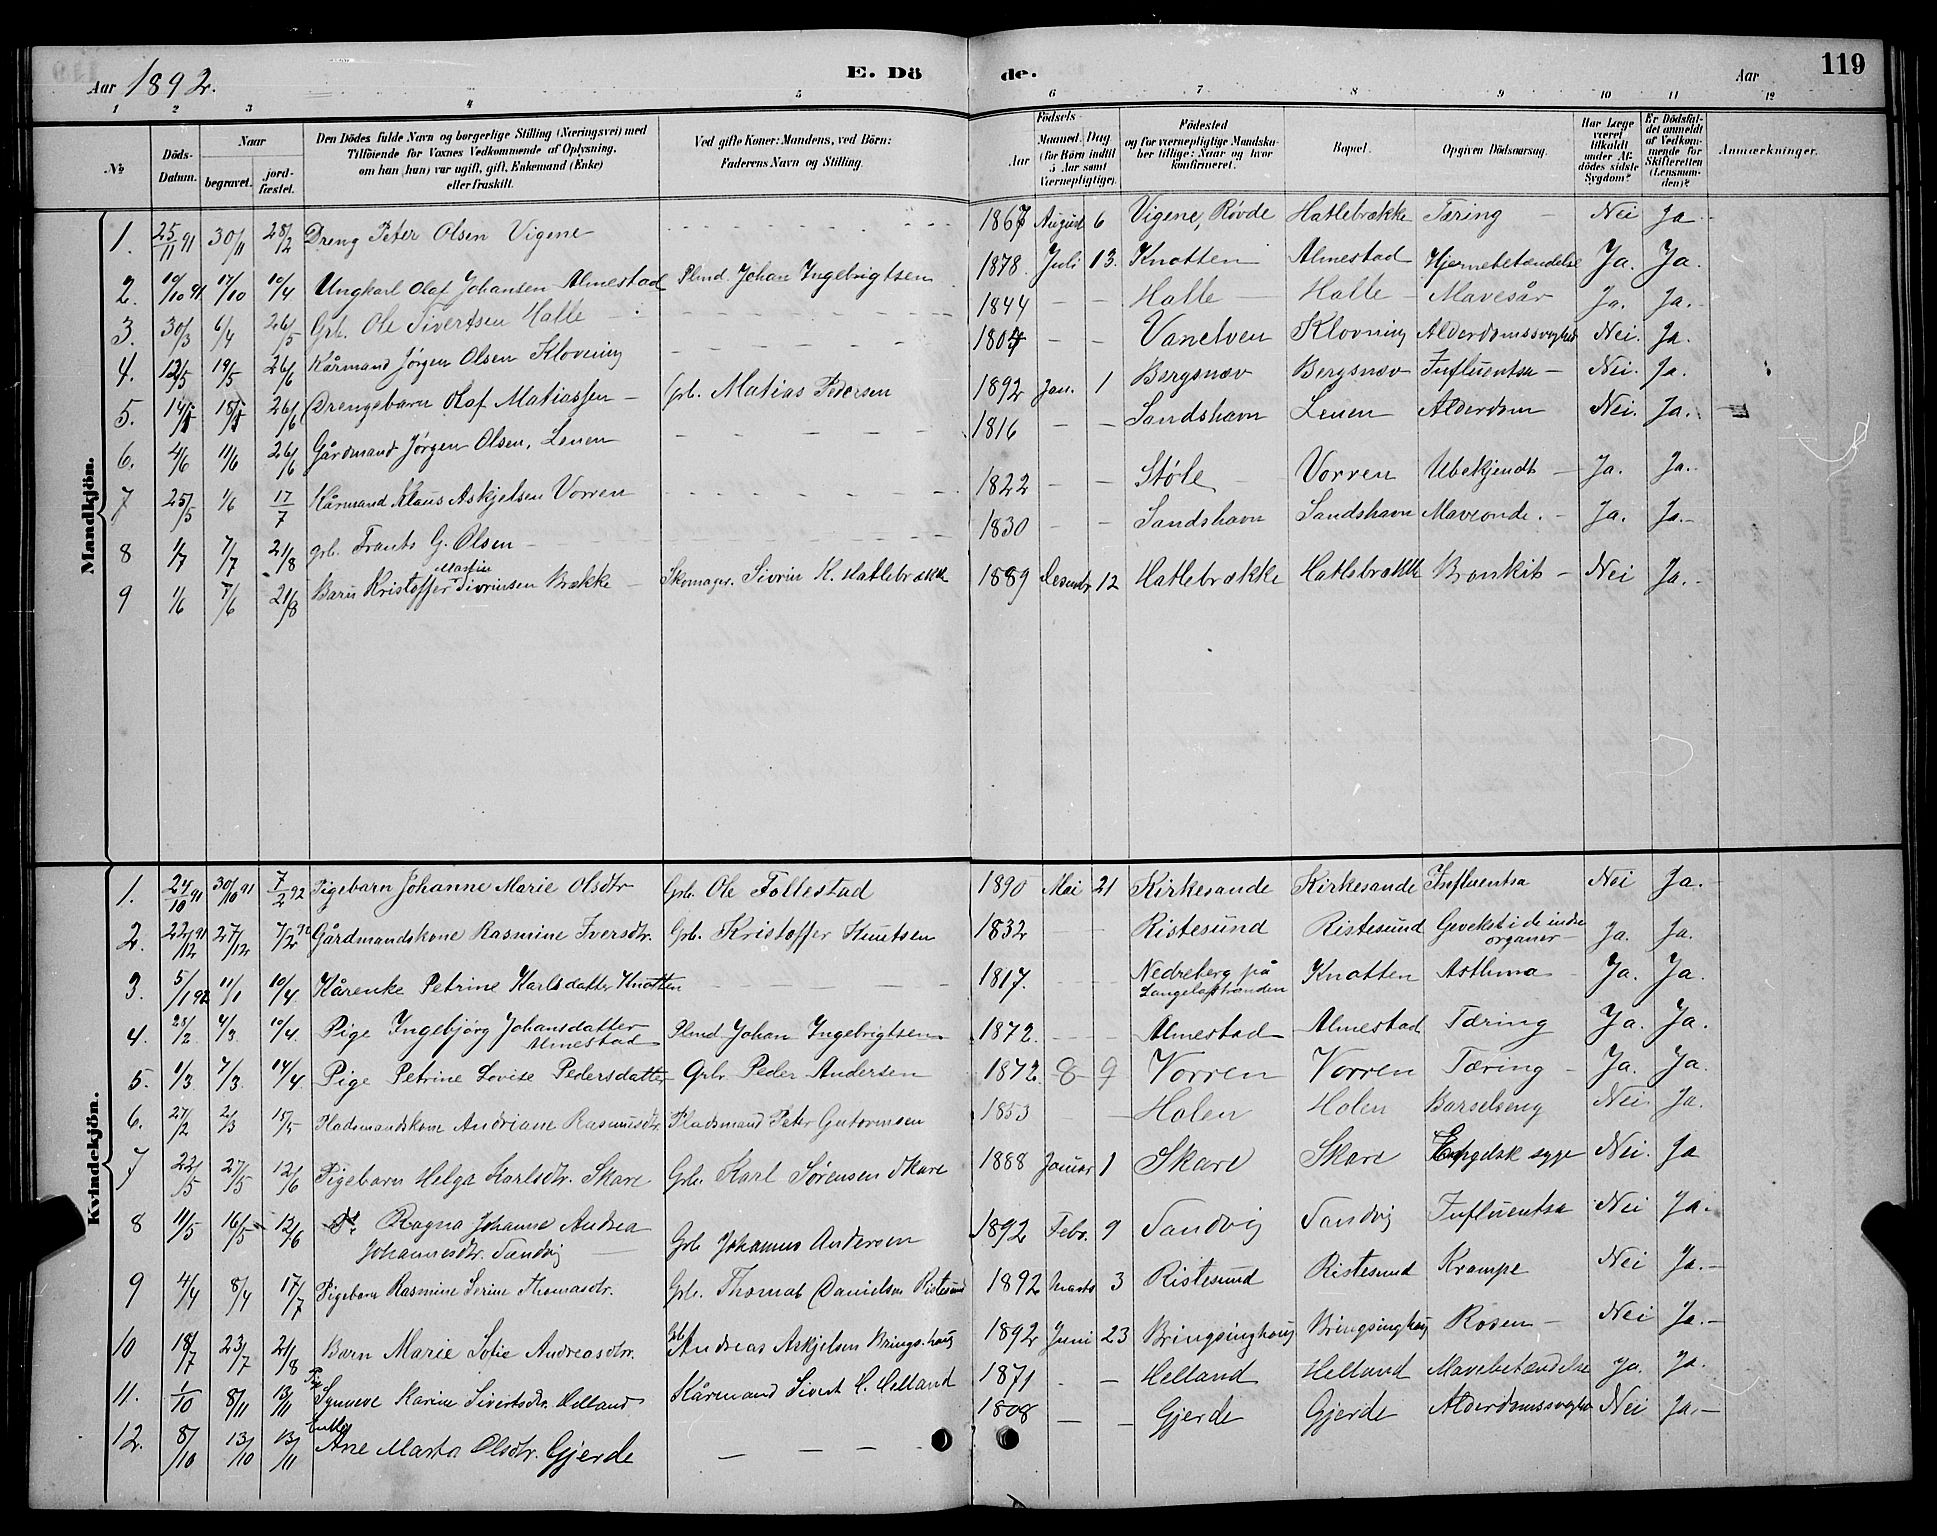 Aar 1892. E. Dö de. Aar 119
1 2 3 4 5 6 7 8 9 10 11 12
No Döds-Datum. Naar begravet. jord-fæstet. Den Dödes fulde Navn og borgerlige Stilling (Næringsvei) med Tilföiende for Voxnes Vedkommende af Oplysning, om han (hun) var ugift, gift, Enkemand (Enke) eller fraskilt. Ved gifte Koner: Mandens, ved Börn: Faderens Navn og Stilling. Födsels- Aar Maaned. Dag (for Börn indtil 5 Aar samt Værnepligtige). Födested og for værnepligtige Mandskaber tillige: Naar og hvor konfirmeret. Bopæl. Opgiven Dödsaarsag. Har Læge været tilkaldt under Afdödes sidste Sygdom? Er Dödsfaldet anmeldt af Vedkommende for Skifteretten (Lensmanden)? Anmærkninger.
Mandkjön.
1. 25/11 91 30/11 28/12 Dreng Peter Olsen Vigene 1867 August 6 Vigene, Røvde Hatlebrække Tæring Nei Ja.
2. 10/10 91 17/10 10/4 Ungkarl Olaf Johansen Almestad Plmd. Johan Ingebrigtsen 1878. Juli 13. Knotten Almestad Hjernebetændelse Ja. Ja.
3. 30/3 6/4 26/5 Grb. Ole Sivertsen Halle 1844 Halle Halle Mavesår Ja. Ja.
4. 12/5 19/5 26/6 Kårmand Jørgen Olsen Klovning 1804 Vanelven Klovning Alderdomssvaghed Nei. Ja.
5. 14/5 18/5 26/6 Drengebarn Olaf Matiassen Grb. Matias Pedersen 1892 Jan. 1 Bergsnæv Bergsnæv Influentsa Nei. Ja.
6. 4/6 11/6 26/6 Gårdmand Jørgen Olsen, Lenen 1816 Sandshavn Lenen Alderdom Nei. Ja.
7 25/5 1/6 17/7 Kårmand Klaus Askjelsen Vorren 1822 Støle Vorren Ubekjendt Ja. Ja.
8 1/7 7/7 21/8 grb. Frants G. Olsen 1830 Sandshavn Sandshavn Maveonde. Ja. Ja.
9 1/6 7/6 21/8 Barn Kristoffer Martin Sivrinsen Brække Skomager. Sivrin K. Hatlebrække 1889 Desembr 12 Hatlebrække Hatlebrække Bronkit Nei Ja.
Kvindekjön.
1. 24/10 91 30/10 91 7/2 92 Pigebarn Johanne Marie Olsdtr Grb. Ole Follestad 1890 Mai 21 Kirkesande Kirkesande Influentsa Nei Ja.
2. 22/12 91 27/12 7/2 Gårdmandskone Rasmine Iversdtr. Grb. Kristoffer Knutsen 1832 Ristesund Ristesund Gevekst i de indre organer Ja. Ja.
3. 5/1 92 11/1 10/4 Kårenke Petrine Karlsdatter Knotten 1817. Nedreberg på Langelapstranden Knotten Asthma Ja. Ja.
4. 28/2 4/3 10/4 Pige Ingebjørg Johansdatter Almestad Plmd Johan Ingebrigtsen 1872. Almestad Almestad Tæring Ja. Ja.
5. 1/3 7/3 14/4 Pige Petrine Lovise Pedersdatter Grb. Peder Andersen 1872. 8 9 Vorren Vorren Tæring Ja. Ja.
6. 27/2 2/3 15/5 Pladsmandskone Andriane Rasmusdtr. Pladsmand Peter Gutormsen 1853 Holen Holen Barselseng Nei. Ja.
7 22/5 27/5 12/6 Pigebarn Helga Karlsdtr. Skare Grb. Karl Sørensen Skare 1888 Januar 1 Skare Skare Engelsk syge Nei. Ja
8 11/5 16/5 12/6 Do. Ragna Johanne Andrea Johannesdtr. Sandvig Grb Johannes Andersen 1892 Febr. 9 Sandvig Sandvig Influentsa Nei Ja.
9 4/4 8/4 17/7 Pigebarn Rasmine Serine Thomasdtr. Grb. Thomas Danielsen Ristesund 1892 Marts 3 Ristesund Ristesund Krampe Nei Ja.
10 18/7 23/7 21/8 Barn Marie Sofie Andreasdtr. Grb Andreas Askjelsen Bringshaug 1892 Juni 23 Bringsinghaug Bringsinghaug Rosen Nei Ja.
11. 1/10 8/11 13/11 Pige Synneve Karine Sivertsdtr. Helland Kårmand Sivert H. Helland 1871 Helland Helland Mavebetændelse Ja. Ja.
12. 8/10 13/10 13/11 Enke Ane Marta Olsdtr. Gjerde 1808 Gjerde Gjerde Alderdomssvaghed Nei Ja.